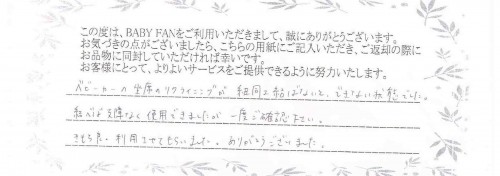 この度は、BABY FANをご利用いただきまして、誠にありがとうございます。
お気づきの点がございましたら、こちらの用紙にご記入いただき、ご返却の際に
お品物に同封していただければ幸いです。
お客様にとって、よりよいサービスをご提供できるように努力いたします。
ベビーカーの座席のリクライニングが 紐同士結ばないと、できない状態でした。
結べば支障なく使用できましたが 一度ご確認下さい。
利用させてもらいました。ありがとうございました。